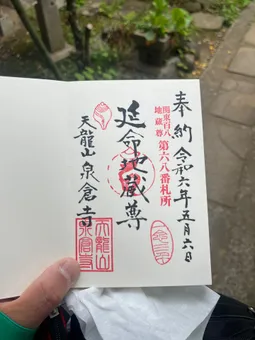 奉納 令和六年五月六日
関東百八
地蔵尊
第六八番札所
延命地蔵尊
天龍山 泉倉寺
天龍山
泉倉寺